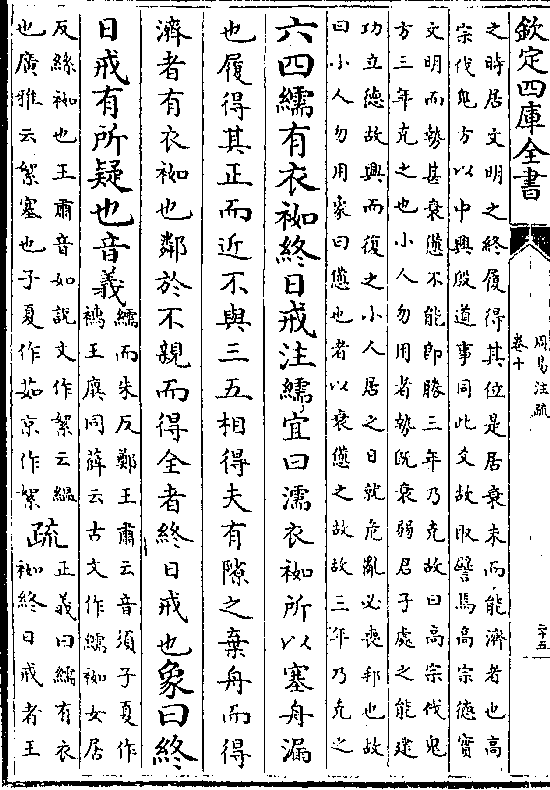 欽定四庫全書
周易注疏
卷十
二十五
之時居文明之終履得其位是居衰末而能濟者也高
宗伐鬼方以中興殷道事同此爻故取譬焉高宗德實
文明而勢甚衰憊不能即勝三年乃克故曰高宗伐鬼
方三年克之也小人勿用者勢既衰弱君子處之能建
功立德故興而復之小人居之日就危亂必喪邦也故
曰小人勿用象曰憊也者以衰憊之故故三年乃克之
六四繻有衣袽終日戒注繻宜曰濡衣袽所以塞舟漏
也履得其正而近不與三五相得夫有隙之棄舟而得
濟者有衣袽也鄰於不親而得全者終日戒也象曰終
日戒有所疑也音義
繻而朱反鄭王肅云音須子夏作
襦王廙同薛云古文作繻袽女居
反絲袽也王肅音如說文作絮云縕
也廣雅云絮塞也子夏作茹京作絮
疏
正義曰繻有衣
袽終日戒者王